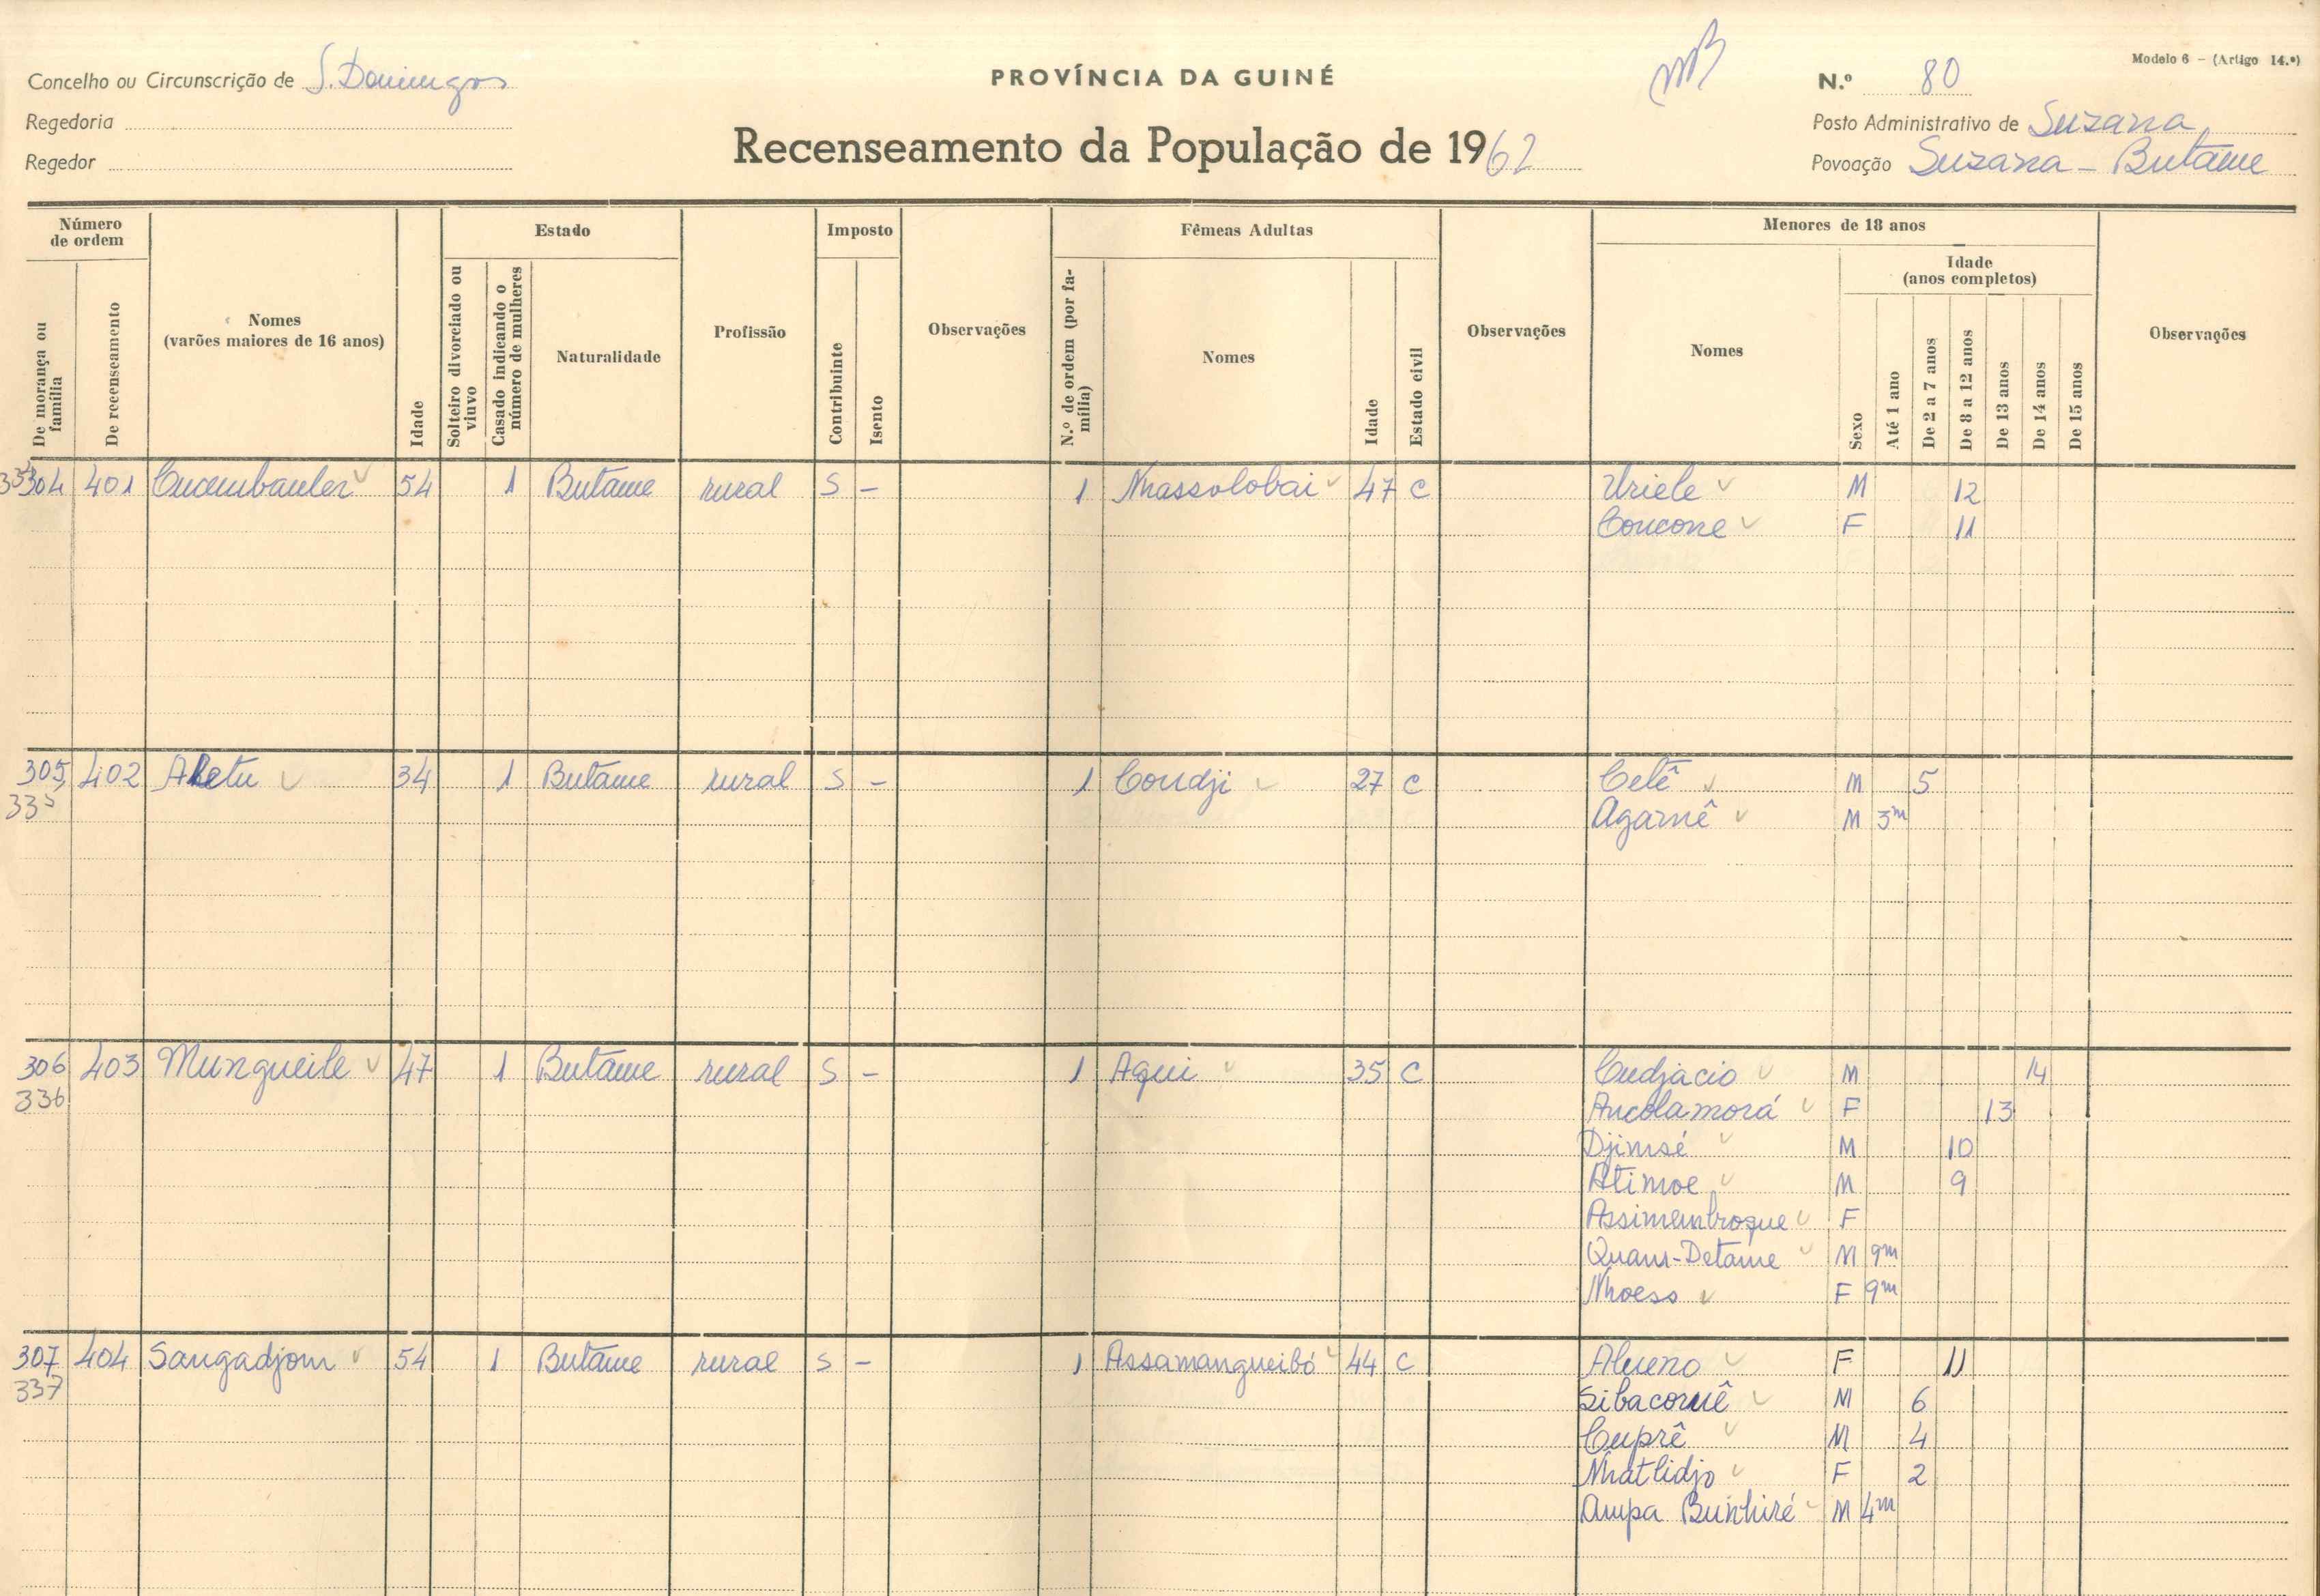 Modelo 6 - (Artigo 14.º)
Concelho ou Circunscrição de S. Domingos
PROVÍNCIA DA GUINÉ
N.º 80
Regedoria
Posto Administrativo de Suzana
Regedor
Recenseamento da População de 1962
Povoação Suzana - Butame
Número de ordem
De morança ou família
De recenseamento
Nomes
(varões maiores de 16 anos)
Idade
Estado
Solteiro divorciado ou viuvo
Casado indicando o número de mulheres
Naturalidade
Profissão
Imposto
Contribuinte
Isento
Observações
Fêmeas Adultas
N.º de ordem (por família)
Nomes
Idade
Estado civil
Observações
Menores de 18 anos
Nomes
Sexo
Idade
(anos completos)
Até 1 ano
De 2 a 7 anos
De 8 a 12 anos
De 13 anos
De 14 anos
De 15 anos
Observações
304 401 54 1 Butame rural S - 1 Nhassolobai 47 C Uriele M 12
Coucone F 11
305 402 Aletu 34 1 Butame rural S - 1 Condji 27 C Celê M 5
335 Agarnê M 3m
306 403 Mungueile 47 1 Butame rural S - 1 Aqui 35 C Cudjacio M 14
336 Ancolamorá F 13
Djimsé M 10
Atimoe M 9
Assimembroque F
Quam-Detame M 9m
Nhoeso F 9m
307 404 Sangadjom 54 1 Butame rural S - 1 Assamangueibó 44 C Alueno F 11
337 Sibacornê M 6
Cuprê M 4
Nhatlidjo F 2
Ampa Bunhiré M 4m